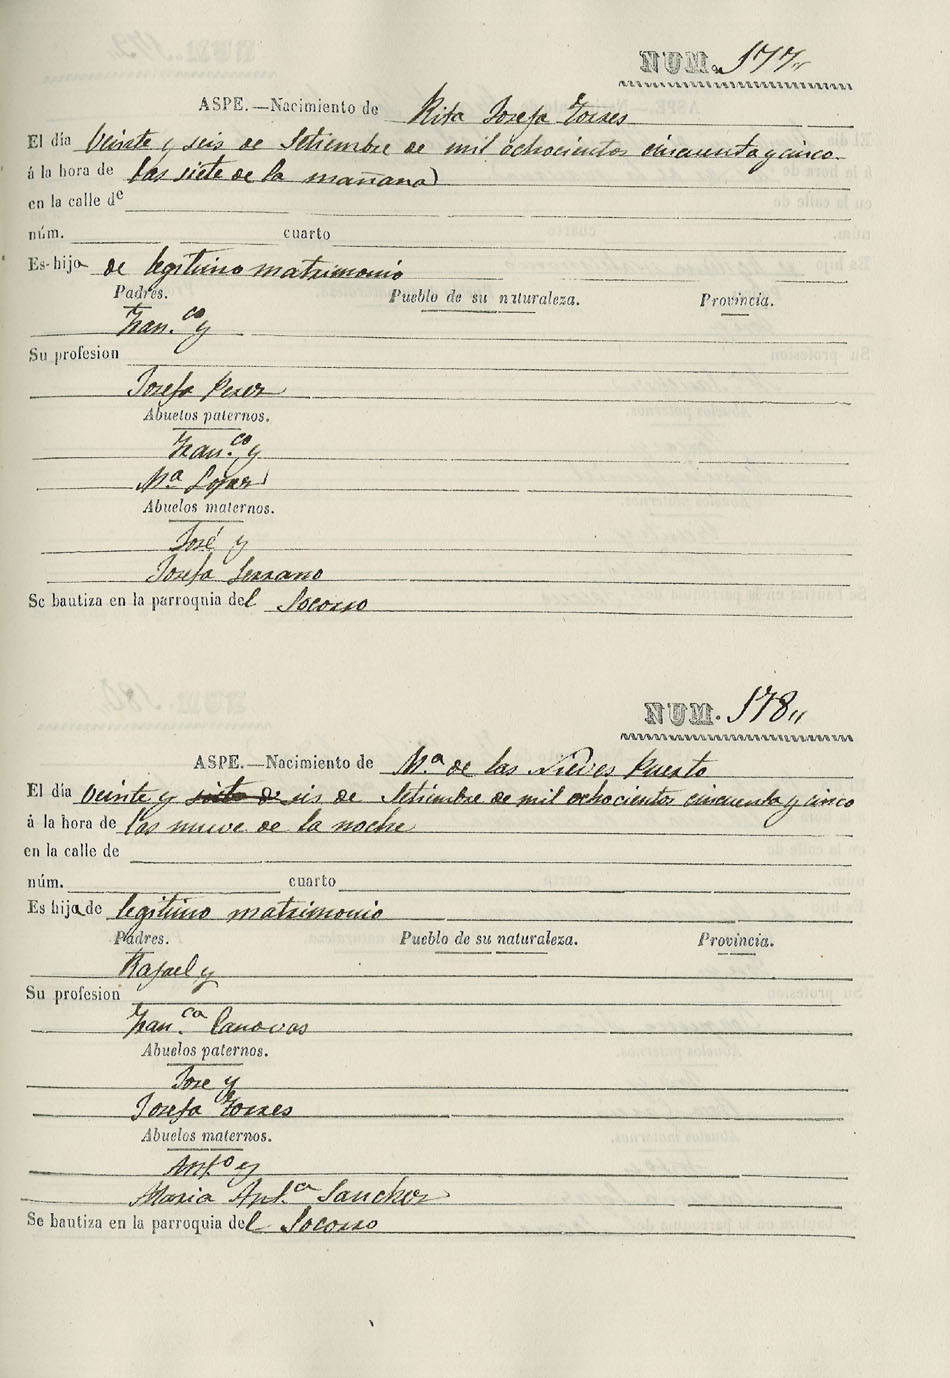 NUM. 177
ASPE.—Nacimiento de Rita Josefa Torres
El día veinte y seis de Setiembre de mil ochocientos cincuenta y cinco
á la hora de las siete de la mañana
en la calle de
núm. cuarto
Es hija de legitimo matrimonio
Padres. Pueblo de su naturaleza. Provincia.
Fran.co y
Su profesion
Josefa Perez
Abuelos paternos.
Fran.co y
Mª Lopez
Abuelos maternos.
José y
Josefa Serrano
Se bautiza en la parroquia del Socorro
NUM. 178
ASPE.—Nacimiento de Mª de las Nieves Puerto
El día veinte y siete de seis de Setiembre de mil ochocientos cincuenta y cinco
á la hora de las nueve de la noche
en la calle de
núm. cuarto
Es hija de legitimo matrimonio
Padres. Pueblo de su naturaleza. Provincia.
Rafael y
Su profesion
Fran.ca Canovas
Abuelos paternos.
Jose y
Josefa Torres
Abuelos maternos.
Antº y
Maria Ant.ca Sanchez
Se bautiza en la parroquia del Socorro